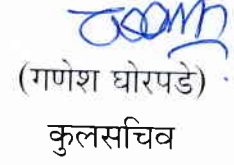 (गणेश घोरपडे)
कुलसचिव